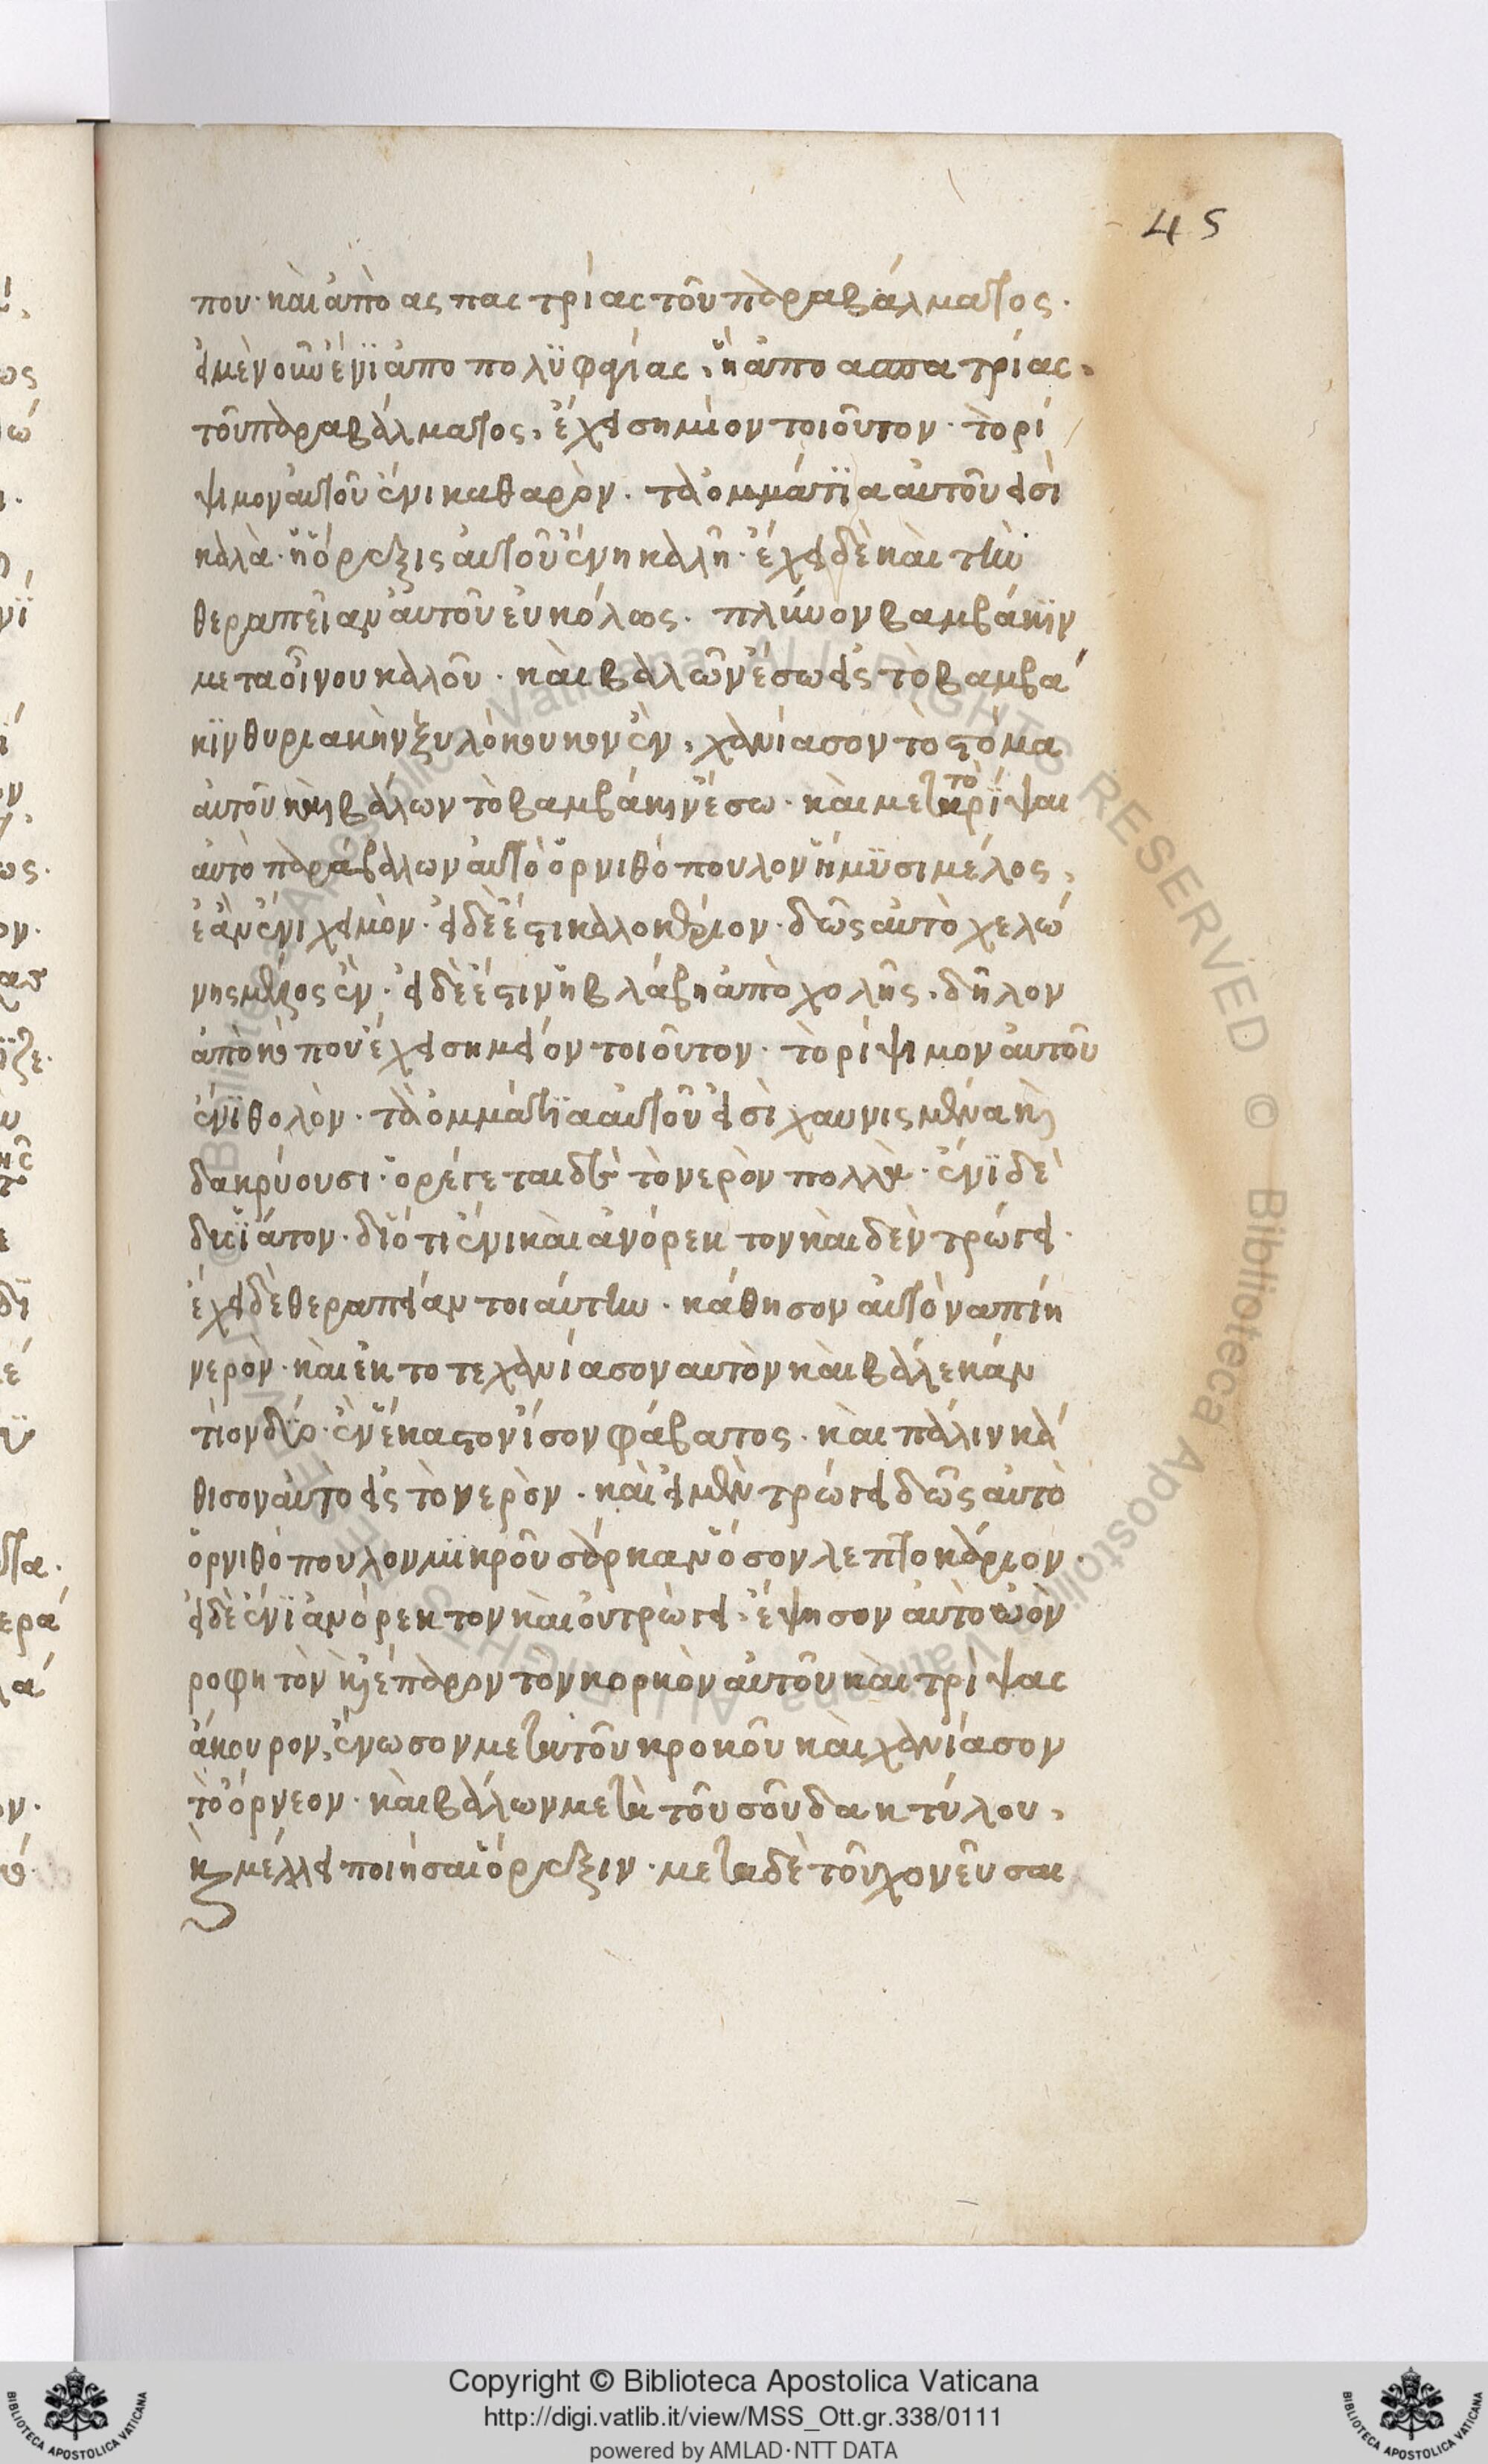 45
που· καὶ ἀπὸ ας πας τρίας τοῦ παραβάλματος·
εἰ μὲν οὖν ἔνϊ ἀπο πολϋφαγίας, ἢ ἀπο ασπατρίας,
τοῦ παραβάλματος, ἔχει σημίον τοιοῦτον· τὸ ρί
ψιμον αὐτοῦ ἔνι καθαρὸν· τὰ ὀμμάτϊα αὐτοῦ εἰσὶ
καλὰ· ἡ ὄρεξις αὐτοῦ ἔνη καλῆ· ἔχει δὲ καὶ τὴν
θεραπεῖαν αὐτοῦ εὐκόλως· πλύνον βαμβάκϊν
μετα οἴνου καλοῦ· καὶ βαλῶν ἔσω εἰς τὸ βαμβά
κϊν θυριακὴν ξυλόκουκον ἓν, χανίασον τὸ στόμα
αὐτοῦ καὶ βάλων τὸ βαμβάκιν ἔσω· καὶ μετὰ τὸ ρίψαι
αὐτὸ παράβαλων αὐτὸ ὀρνιθόπουλον ἥμϋσι μέλος,
ἐὰν ἔνι χειμὸν· εἰ δὲ ἔστι καλοκαίριον· δῶς αὐτὸ χελώ
νης μέρος ἓν· εἰ δὲ ἔστιν ἡ βλάβη ἀπὸ χολῆς, δῆλον
ἀπὸ κόπου ἔχει σημεῖον τοιοῦτον· τὸ ρίψιμον αὐτοῦ
ἔνϊ θολὸν· τὰ ὀμμάτϊα αὐτοῦ εἰσὶ χαυνισμένα καὶ
δακρύουσι· ὀρέγεται δὲ τὸ νερὸν πολλὰ· ἔνϊ δὲ
δϊότι ἔνι καὶ ἀνόρεκτον καὶ δὲν τρώγει·
ἔχει δὲ θεραπείαν τοιάυτην· κάθησον αὐτὸ να πίη
νερὸν· καὶ ἐκτοτε χανίασον αυτὸν καὶ βάλε κάν
τιον ἓν ἕκαστον ἴσον φάβατος· καὶ πάλιν κά
θισον αὐτὸ εἰς τὸ νερὸν· καὶ εἰ μὲν τρώγει δῶς αὐτὸ
ὀρνιθόπουλον μϊκροῦ σάρκαν ὅσον λεπτοκάριον·
εἰ δὲ ἔνϊ ἀνόρεκτον καὶ οὐ τρώγει· ἔψησον αὐτὸ ὠὸν
ροφητὸν καὶ ἔπαρον τὸν κορκὸν αὐτοῦ καὶ τρίψας
ἄκουρον, ἔνωσον μετὰ τοῦ κροκοῦ καὶ χανίασον
τὸ ὄρνεον· καὶ βάλων μετὰ τοῦ σοῦ δακτύλου,
καὶ μέλλει ποιήσαι ὄρεξιν· μετα δὲ τοῦ χονεῦσαι
Copyright © Biblioteca Apostolica Vaticana
http://digi.vatlib.it/view/MSS_Ott.gr.338/0111
powered by AMLAD·NTT DATA